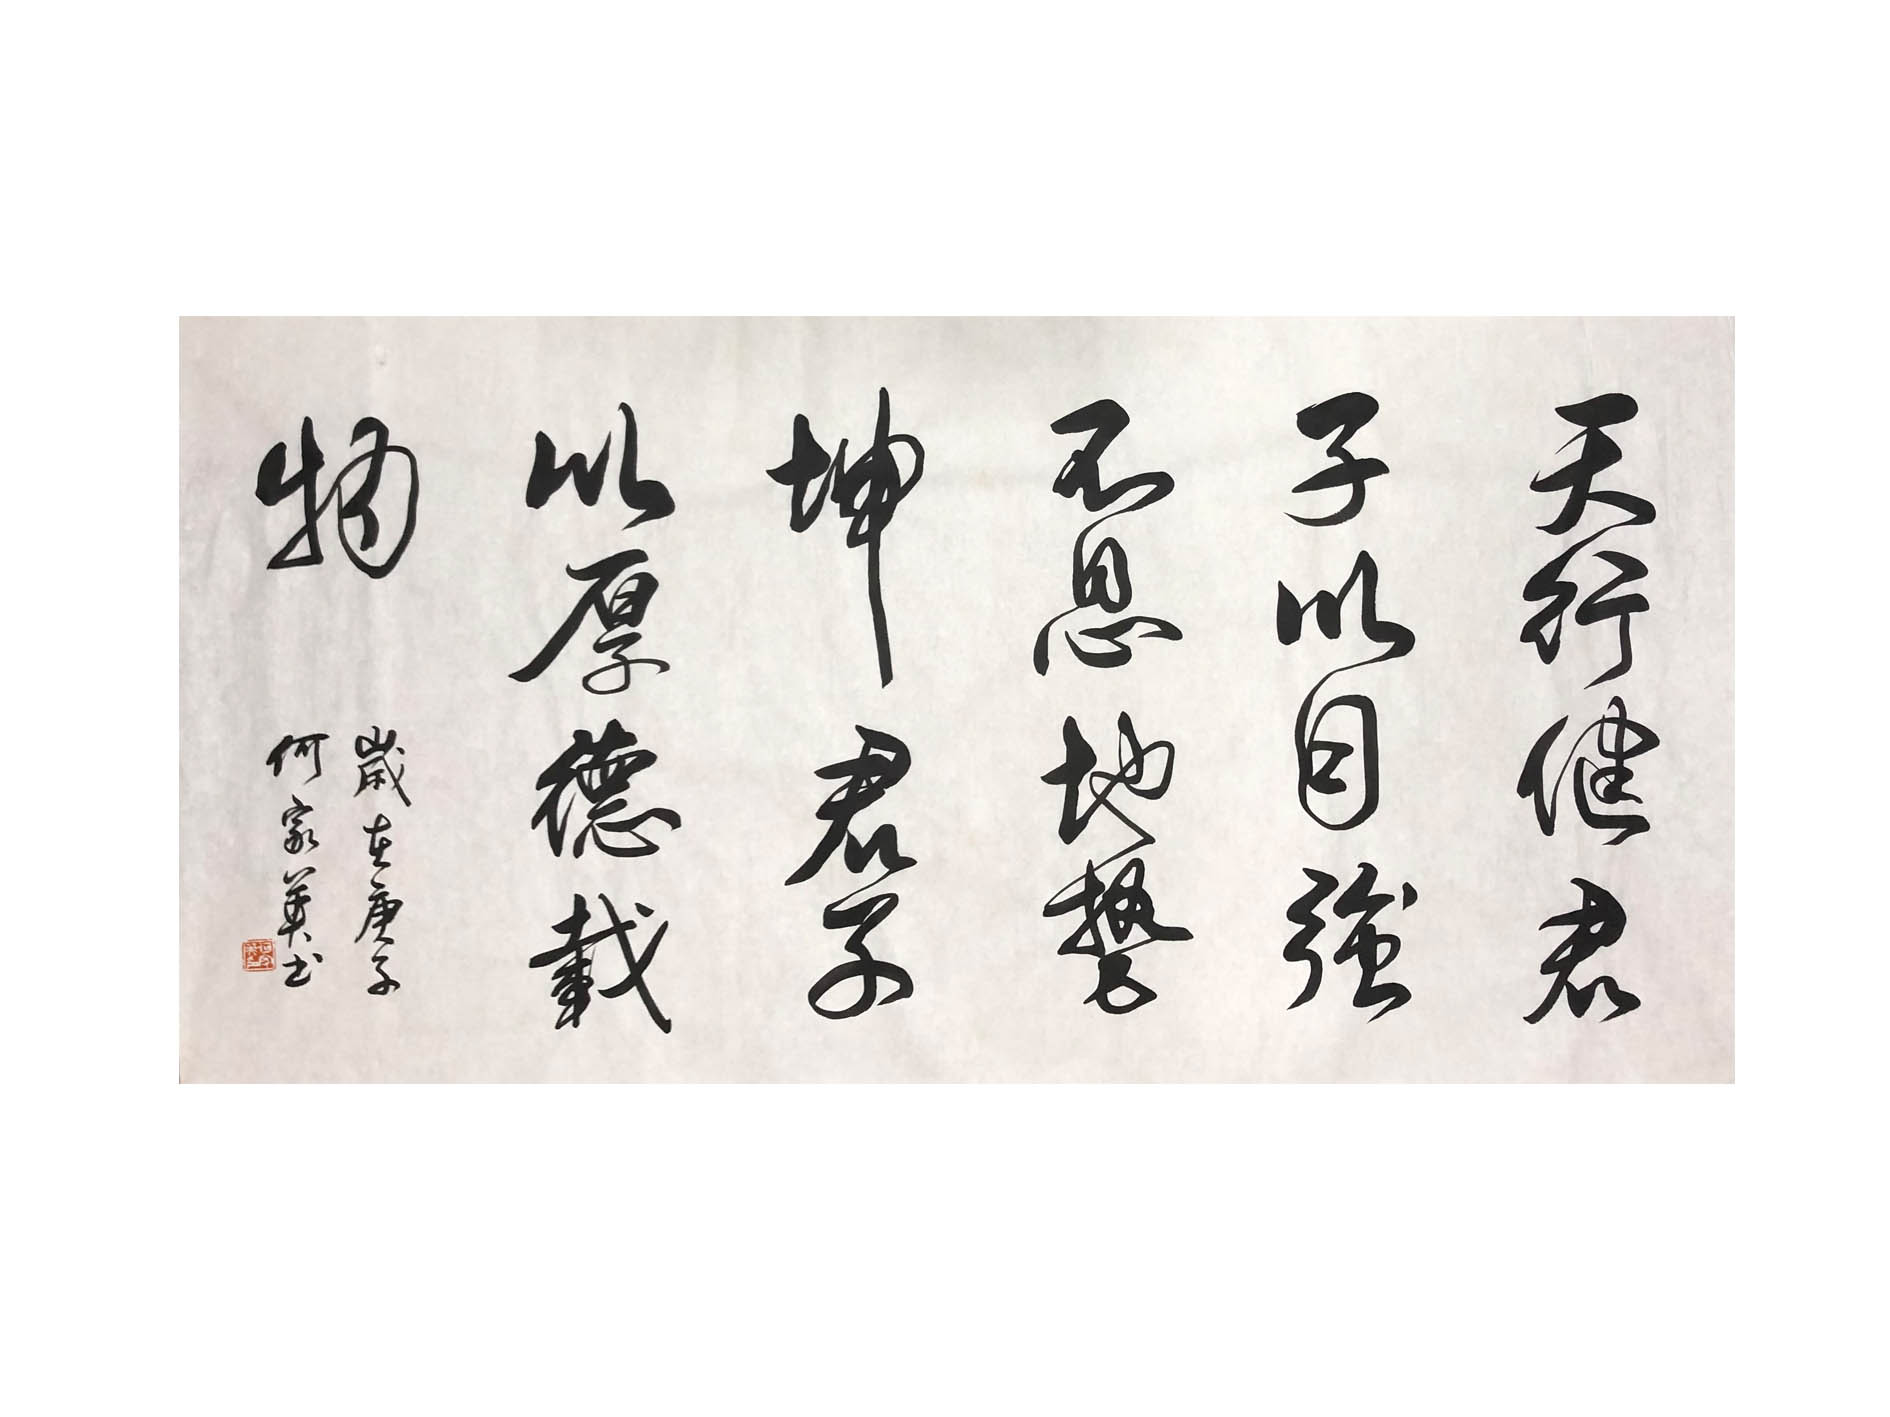 天行健君
子以自強
不息地勢
坤君子
以厚德載
物
歲在庚子
何家英书